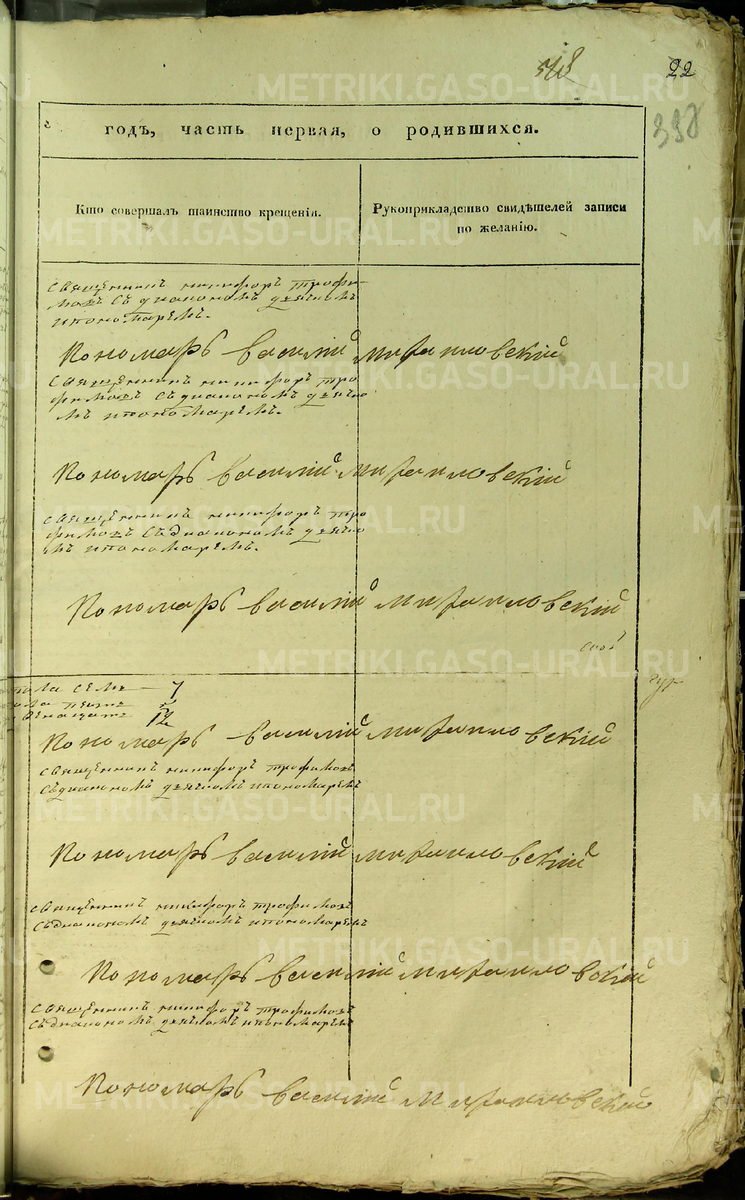 548
22
398
годъ, часть первая, о родившихся.
Кто совершалъ таинство крещенія.
Рукоприкладство свидѣтелей записи
по желанію.
священникъ никифоръ трофи
мовъ съ диакономъ дьячкомъ
ипономаремъ.
Пономарь василий михаиловский
священникъ никифоръ тро
фимовъ съдиакономъ дьячко
мъ ипономаремъ.
Пономарь василий михаиловский
священникъ никифоръ тро
фимовъ съдиакономъ дьячко
мъ ипономаремъ.
Пономарь василий михаиловский
пола семь 7
12
Пономарь василий михаиловский
священникъ никифоръ трофимовъ
съдиакономъ дьячкомъ ипономаремъ
Пономарь василий михаиловский
священникъ никифоръ трофимовъ
съдиакономъ дьячкомъ ипономаремъ
Пономарь василий михаиловский
священникъ никифоръ трофимовъ
съдиакономъ дьячкомъ ипономаремъ
Пономарь василий михаиловский
METRIKI.GASO-URAL.RU